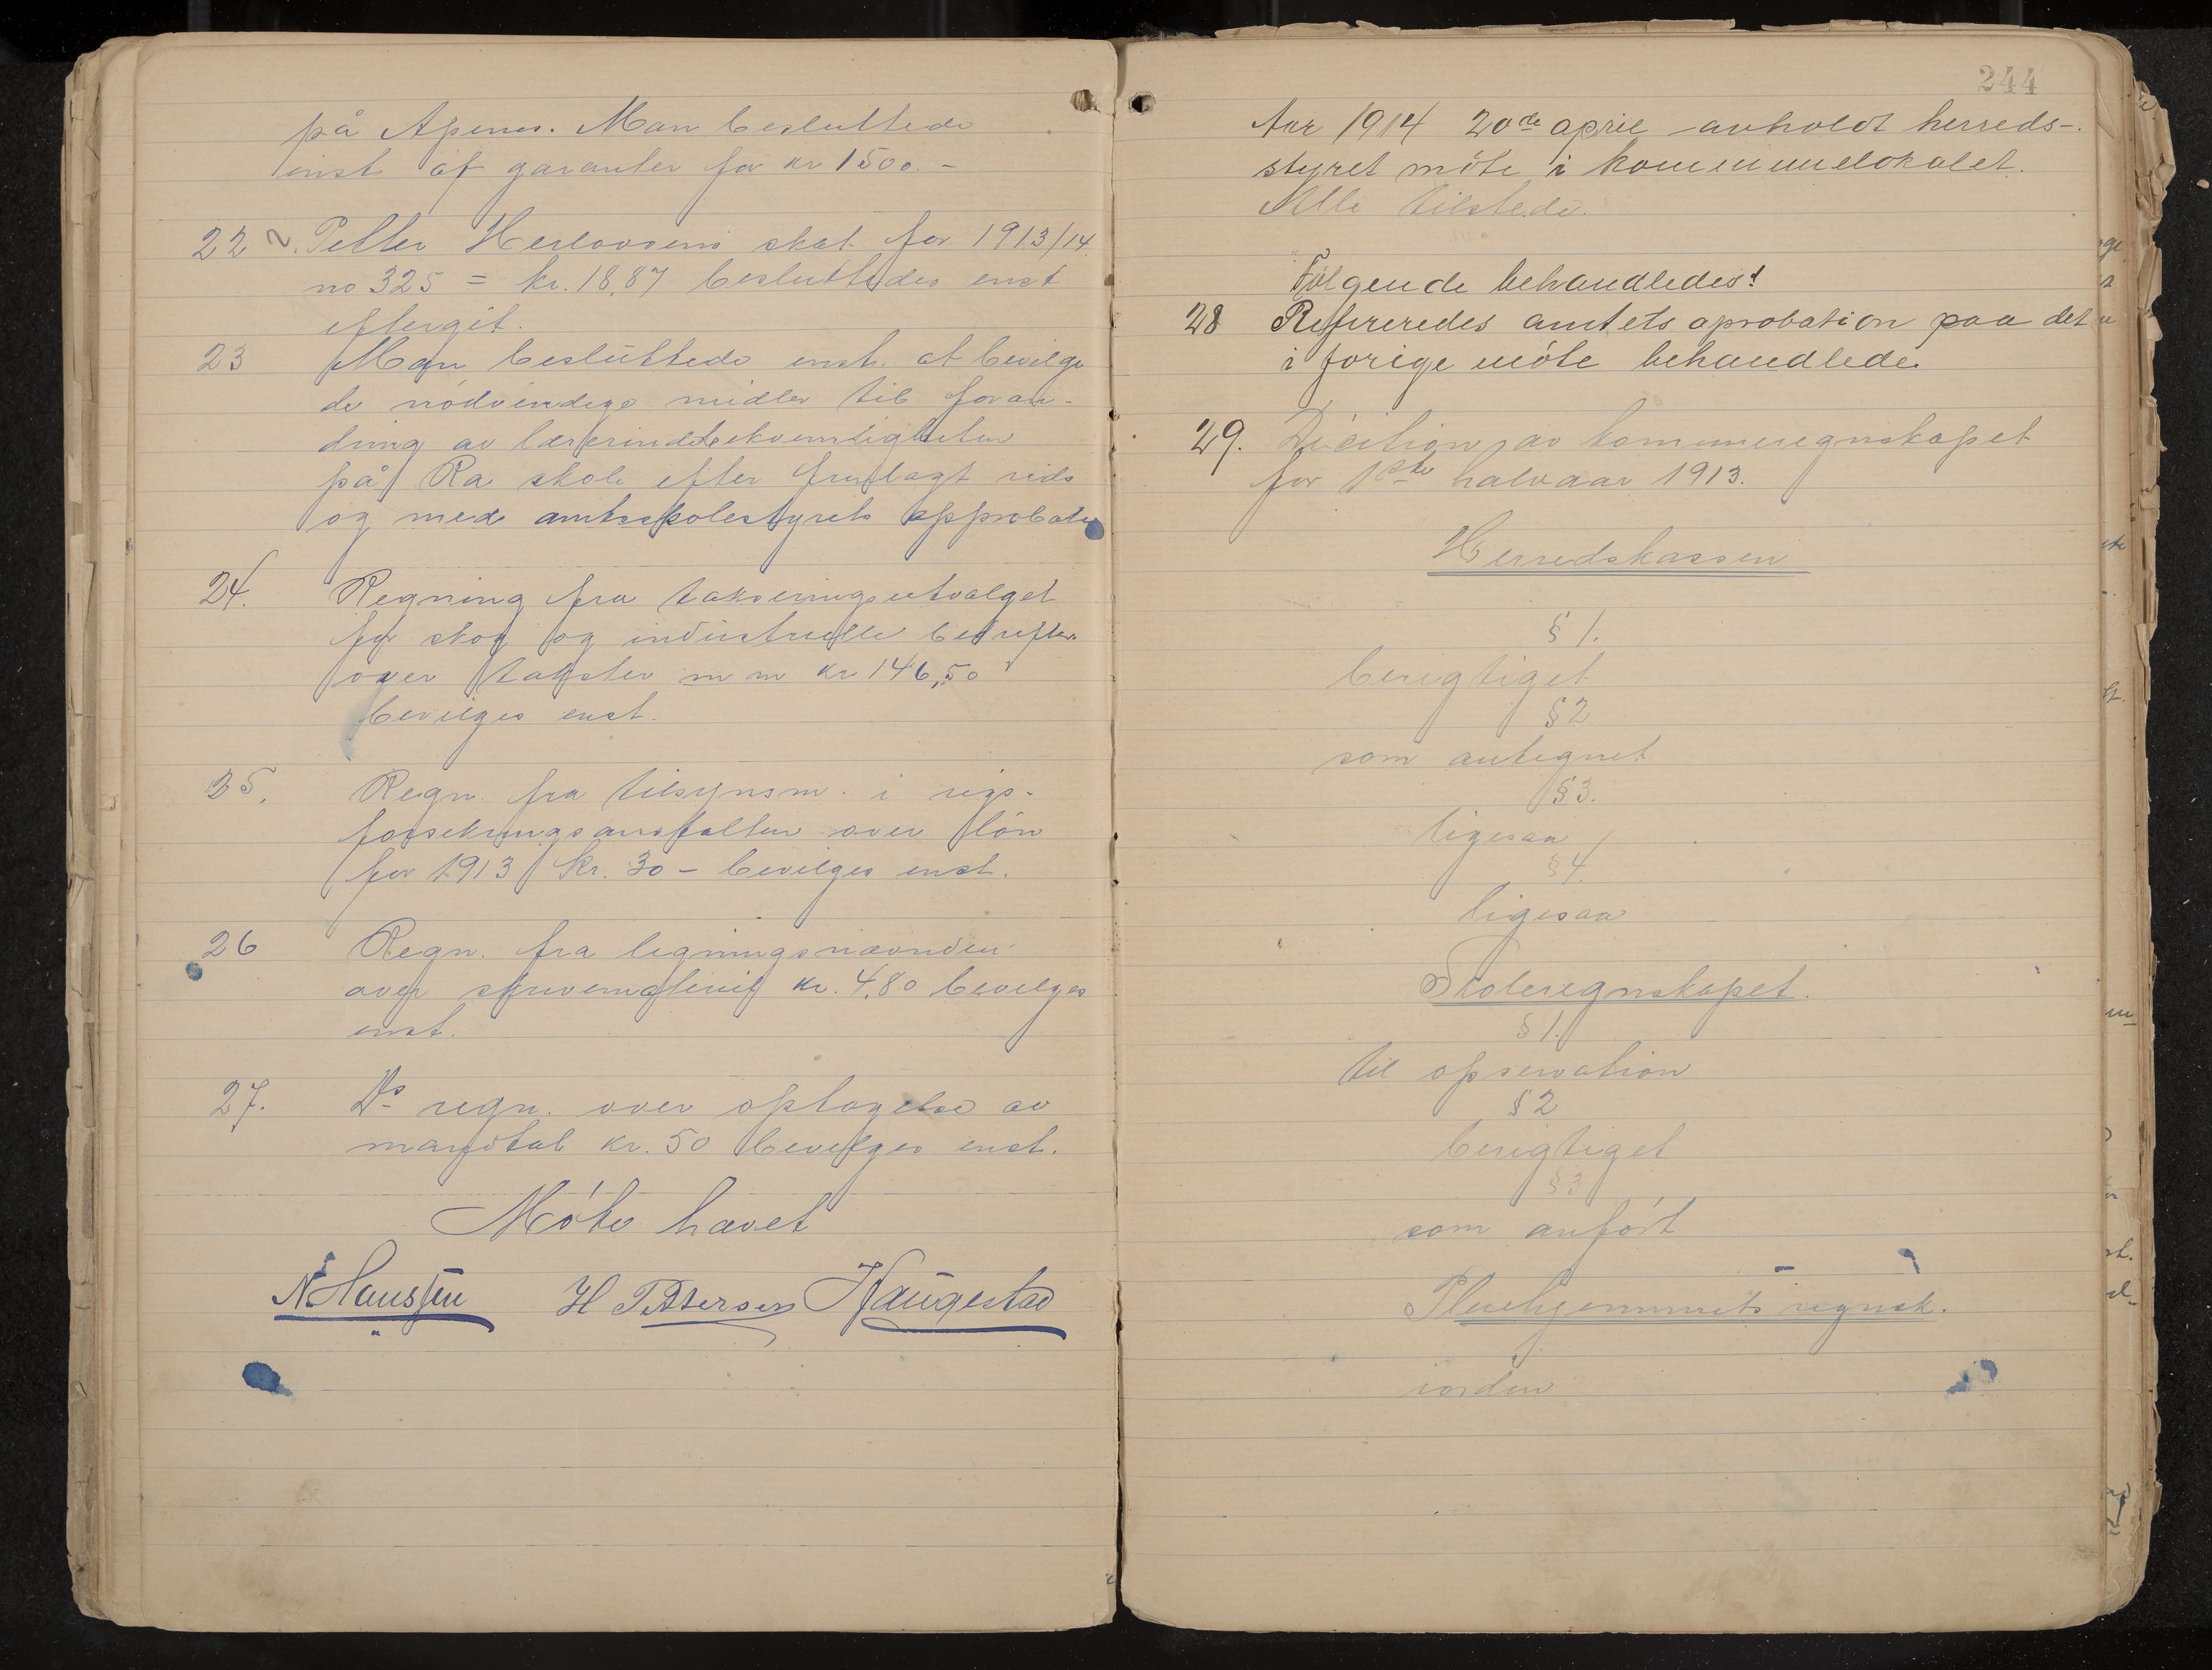 på Apenes. Man besluttede
enst at garanter for kr 1500.-
22 Petter Herlovsens skat for 1913/14
no 325 = kr. 18,87 besluttedes enst
eftergit.
23 Man besluttede enst. at bevilge
de nödvendige midler til foran-
dring av lærerindebekvemligheten
på Ra skole efter fremlagt
og med amtsskolestyrets approbation
24. Regning fra takseringsutvalget
for skog og industrielle bedrifter
over takster m m kr 146,50
bevilges enst.
25. Regn. fra tilsynsm. i rigs-
forsekringsanstalten over lön
for 1913 kr. 30 - bevilges enst.
26 Regn. fra ligningsnævnden
over skrivemateriel kr. 4,80 bevilges
enst.
27. Ds regn. over optagelse av
mandtal kr. 50 bevilges enst.
Möte hævet
N. Hanssen H Pettersen Haugestad
244
Aar 1914 20de april avholdt herreds-
styret möte i kommunelokalet.
Alle tilstede.
Følgende behandledes:
28 Refereredes amtets aprobation paa det
i forige möte behandlede.
29. Dicition av komuneregnskapet
for 1ste halvaar 1913.
Herredskassen
§ 1.
berigtiget
§ 2
som antegnet
§ 3.
ligesaa
§ 4
ligesaa
Skoleregnskapet.
§ 1.
til opservation
§ 2
berigtiget
§ 3
som anfört
Pleiehjemmets regnsk.
iorden